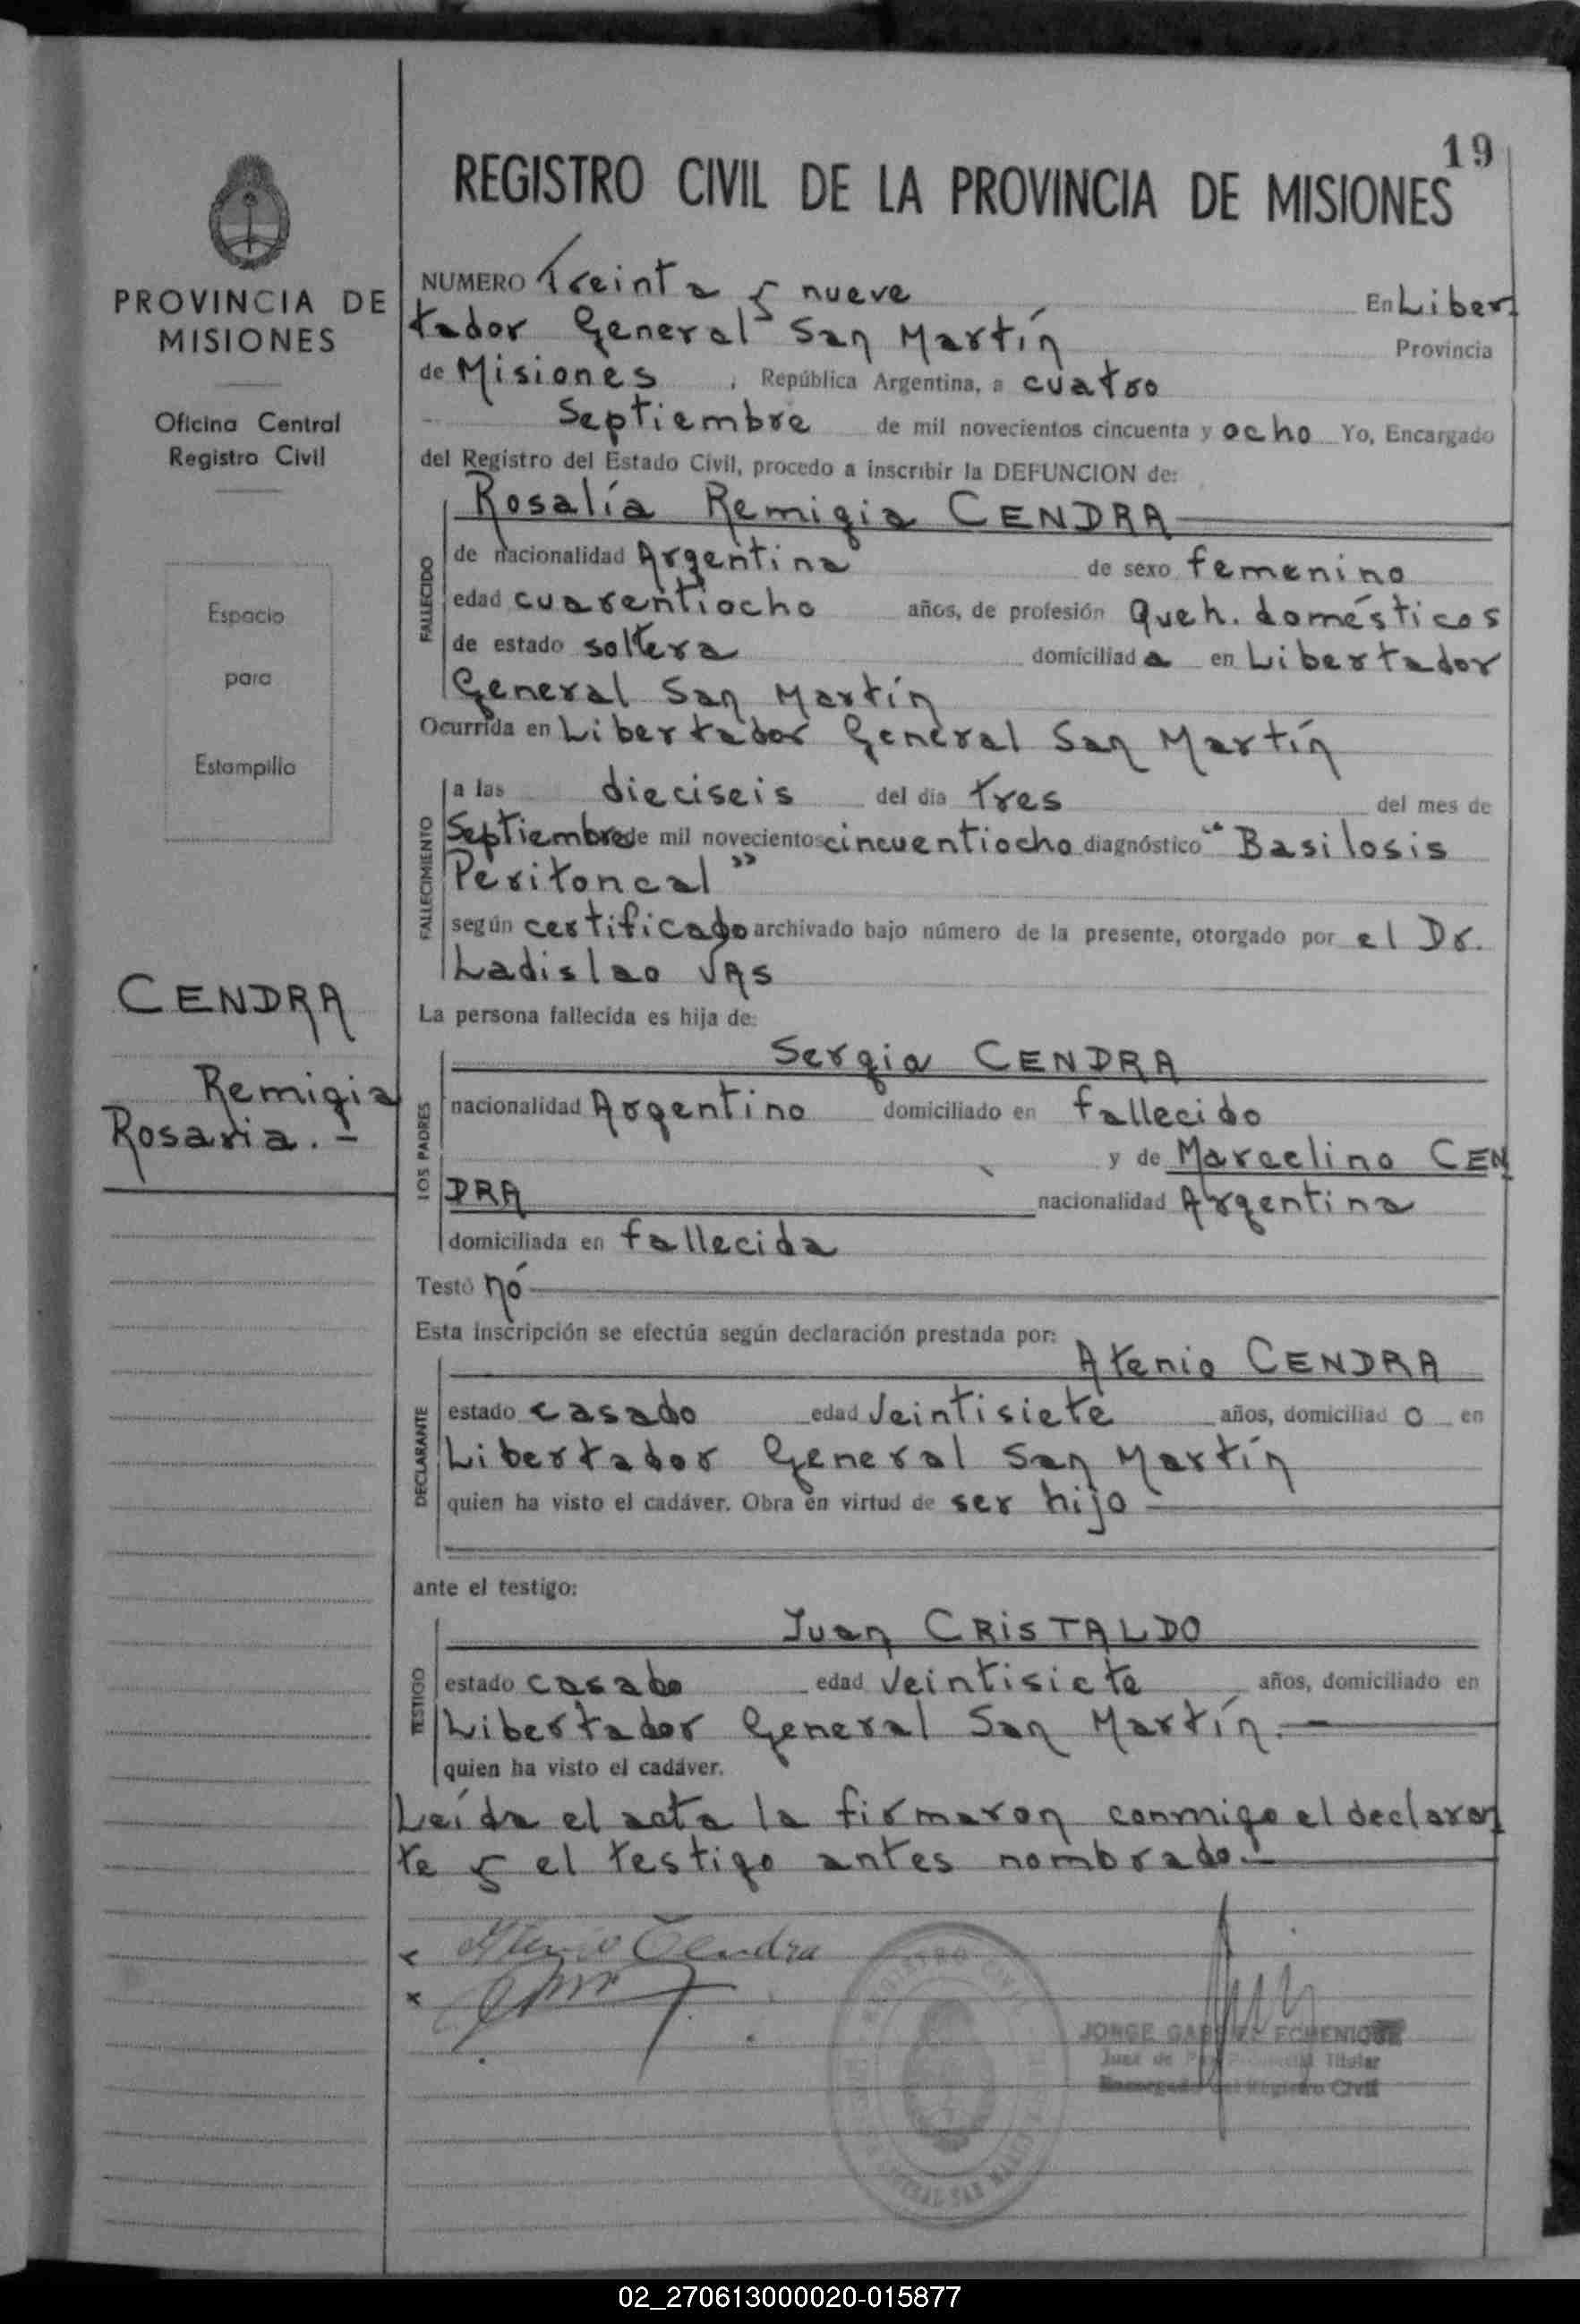 19
REGISTRO CIVIL DE LA PROVINCIA DE MISIONES
PROVINCIA DE
MISIONES
Oficina Central
Registro Civil
Espacio
para
Estampilla
CENDRA
Remigia
Rosaria. -
NUMERO Treinta y nueve En Liber
tador General San Martín Provincia
de Misiones , República Argentina, a cuatro
Septiembre de mil novecientos cincuenta y ocho Yo, Encargado
del Registro del Estado Civil, procedo a inscribir la DEFUNCION de:
Rosalía Remigia CENDRA
FALLECIDO
de nacionalidad Argentina de sexo femenino
edad cuarentiocho años, de profesión Queh. domésticos
de estado soltera domiciliad a en Libertador
General San Martín
Ocurrida en Libertador General San Martín
FALLECIMIENTO
a las dieciseis del día tres del mes de
Septiembre de mil novecientos cincuentiocho diagnóstico "Basilosis
Peritoneal"
según certificado archivado bajo número de la presente, otorgado por el Dr.
Ladislao VAS
La persona fallecida es hija de:
LOS PADRES
Sergio CENDRA
nacionalidad Argentino domiciliado en fallecido
y de Marcelino CEN
DRA nacionalidad Argentina
domiciliada en fallecida
Testó nó
Esta inscripción se efectúa según declaración prestada por:
DECLARANTE
Atenio CENDRA
estado casado edad Veintisiete años, domiciliad o en
Libertador General San Martín
quien ha visto el cadáver. Obra en virtud de ser hijo
ante el testigo:
TESTIGO
Juan CRISTALDO
estado casado edad Veintisiete años, domiciliado en
Libertador General San Martín. -
quien ha visto el cadáver.
Leída el acta la firmaron conmigo el declaran
te y el testigo antes nombrado. -
Atenio Cendra
REGISTRO CIVIL
GENERAL SAN MARTIN
JORGE GABRIEL ECHENIQUE
Juez de Paz Provincial Titular
Encargado del Registro Civil
02_270613000020-015877